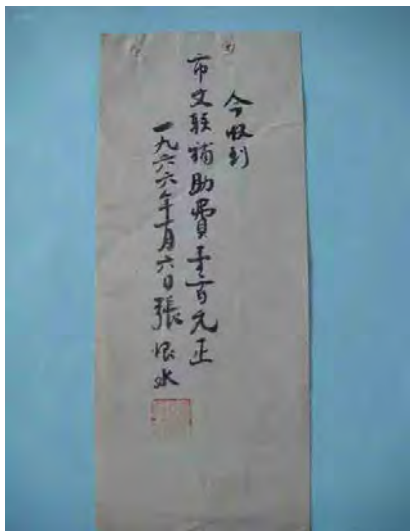 今收到
市文联補助費壹百元正
一九六六年一月六日張恨水